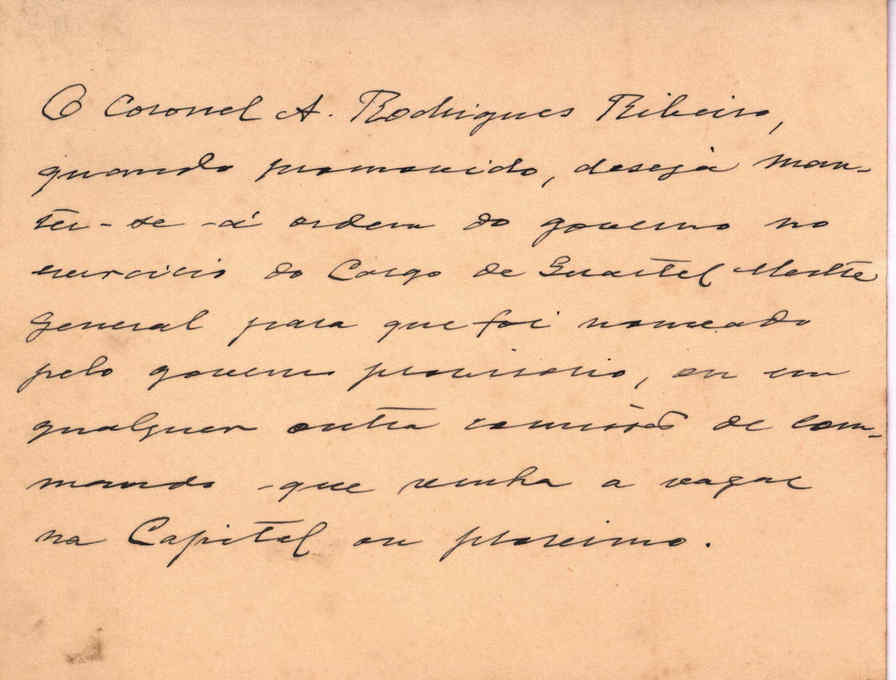 O Coronel A. Rodrigues Ribeiro,
quando promovido, deseja man-
ter-se á ordem do governo no
exercicio do Cargo de Quartel Mestre
General para que foi nomeado
pelo governo provisorio, ou em
qualquer outra comissão de com-
mando que venha a vagar
na Capital ou proximo.